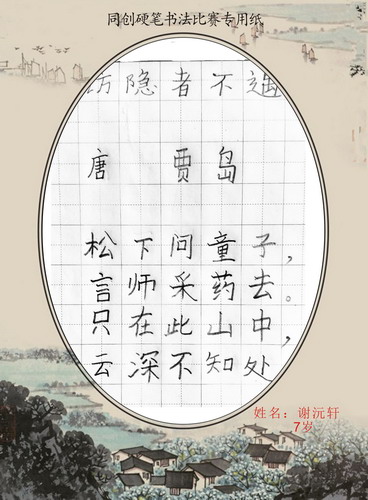 同创硬笔书法比赛专用纸
访隐者不遇
唐 贾岛
松下问童子，
言师采药去。
只在此山中，
云深不知处
姓名：谢沅轩
7岁